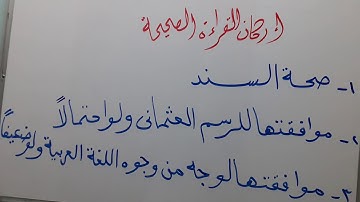 أركان القراءة الصحيحة
١- صحة السند
٢- موافقتها للرسم العثمانى ولو احتمالاً
٣- موافقتها لوجه من وجوه اللغة العربية ولو ضعيفاً